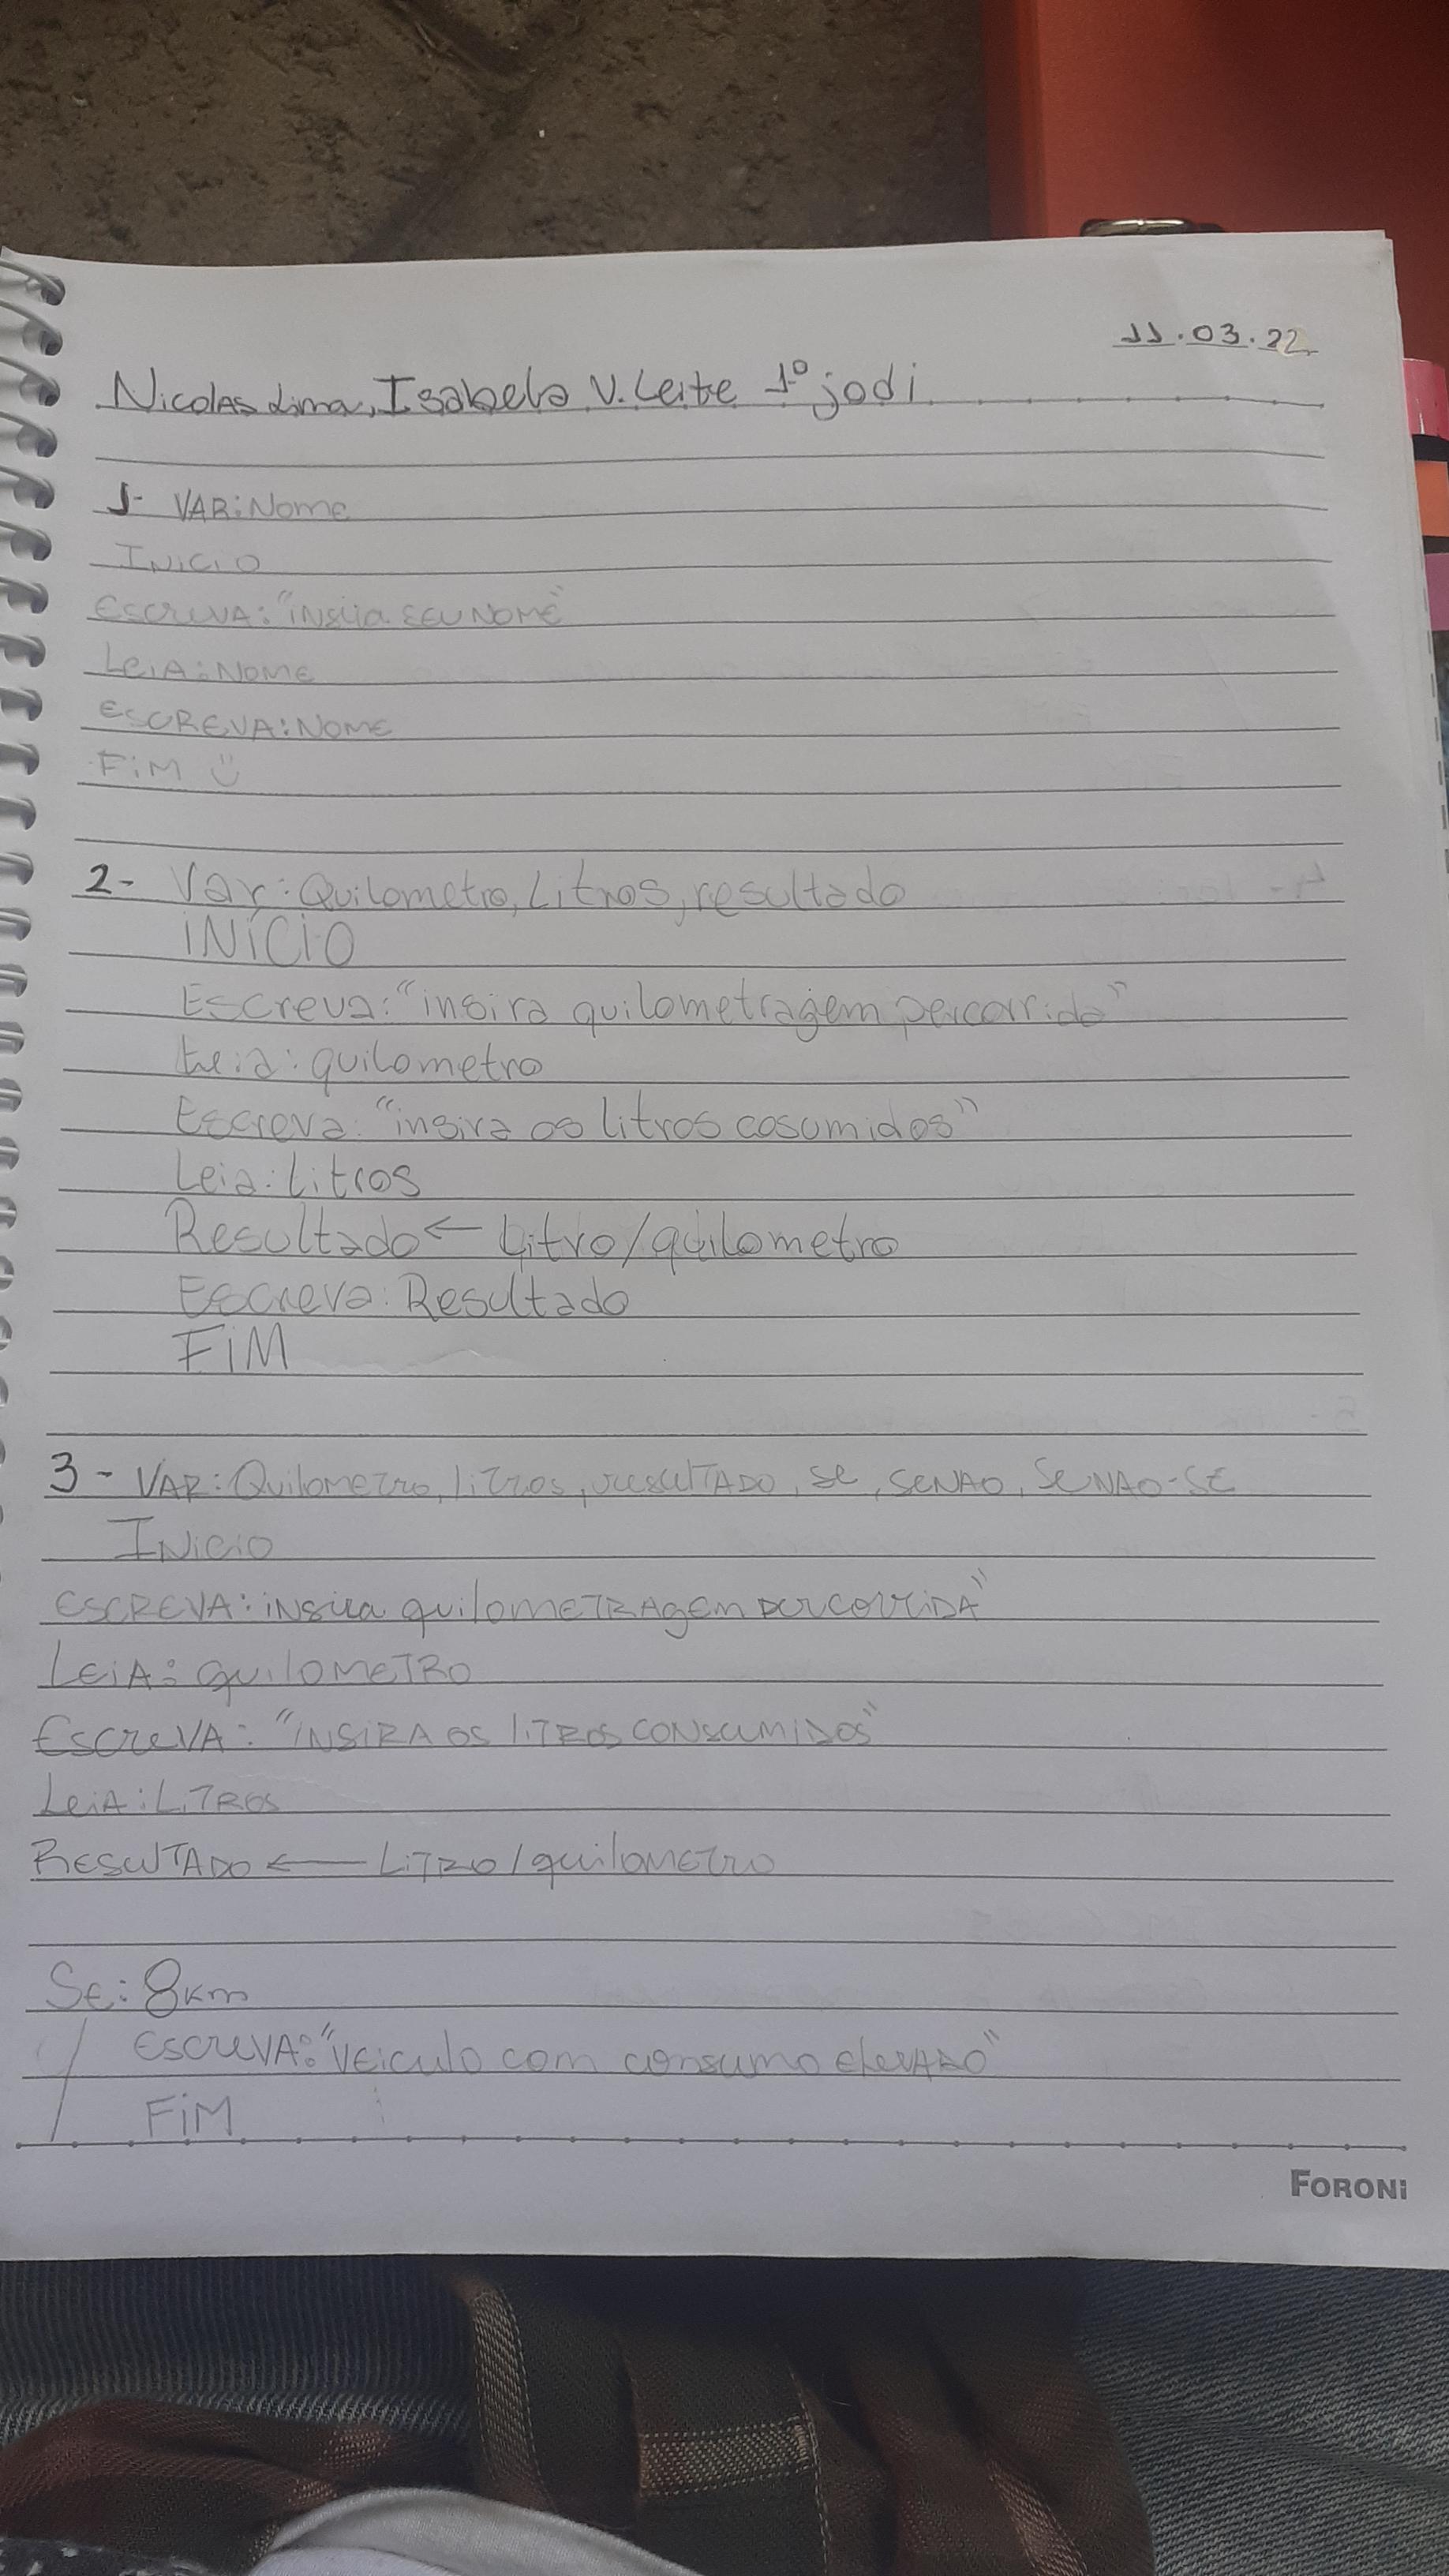 11.03.22
Nicolas Lima, Isabela V. Leite 1º jodi
1- VAR: Nome
INICIO
ESCREVA: "insira SEU NOME"
LEIA: NOME
ESCREVA: NOME
FiM
2- Var: Quilometro, Litros, resultado
INÍCIO
Escreva: "insira quilometragem percorrida"
Leia: quilometro
Escreva: "insira os litros cosumidos"
Leia: Litros
Resultado ← Litro/quilometro
Escreva: Resultado
FiM
3- VAR: Quilometro, litros, resultado, se, SENAO, SENAO-SE
INicio
ESCREVA: insira quilometragem percorrida"
LEIA: quilometro
EscreVA: "INSIRA OS LITROS CONSUMIDOS"
LeiA: LITROS
RESULTADO ← LITRO/quilometro
Se: 8km
ESCREVA: "VEiculo com consumo elevado"
FiM
FORONI